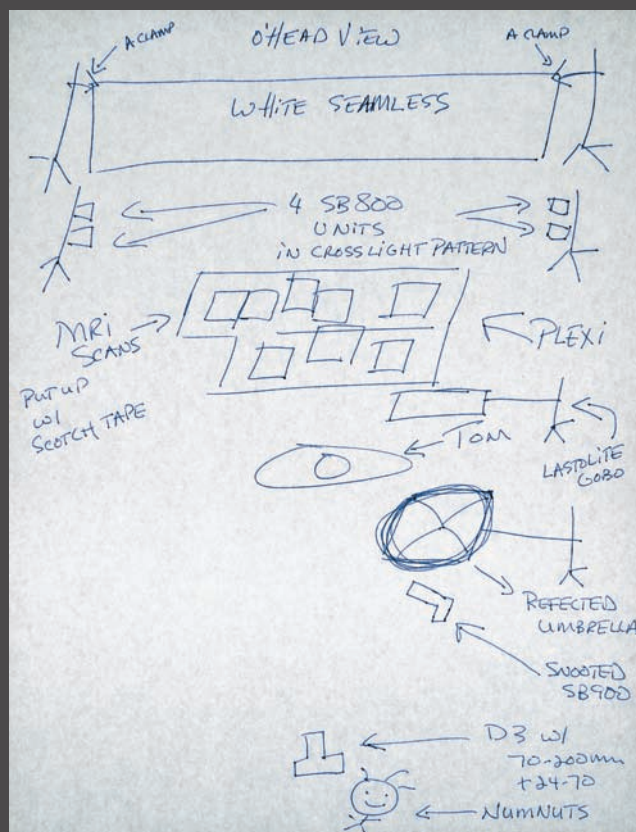 O'HEAD VIEW
A CLAMP
A CLAMP
WHITE SEAMLESS
4 SB800
UNITS
IN CROSSLIGHT PATTERN
MRI
SCANS
PUT UP
W/
SCOTCH TAPE
PLEXI
TOM
LASTOLITE
GOBO
REFECTED
UMBRELLA
SNOOTED
SB900
D3 W/
70-200mm
+24-70
NUMNUTS